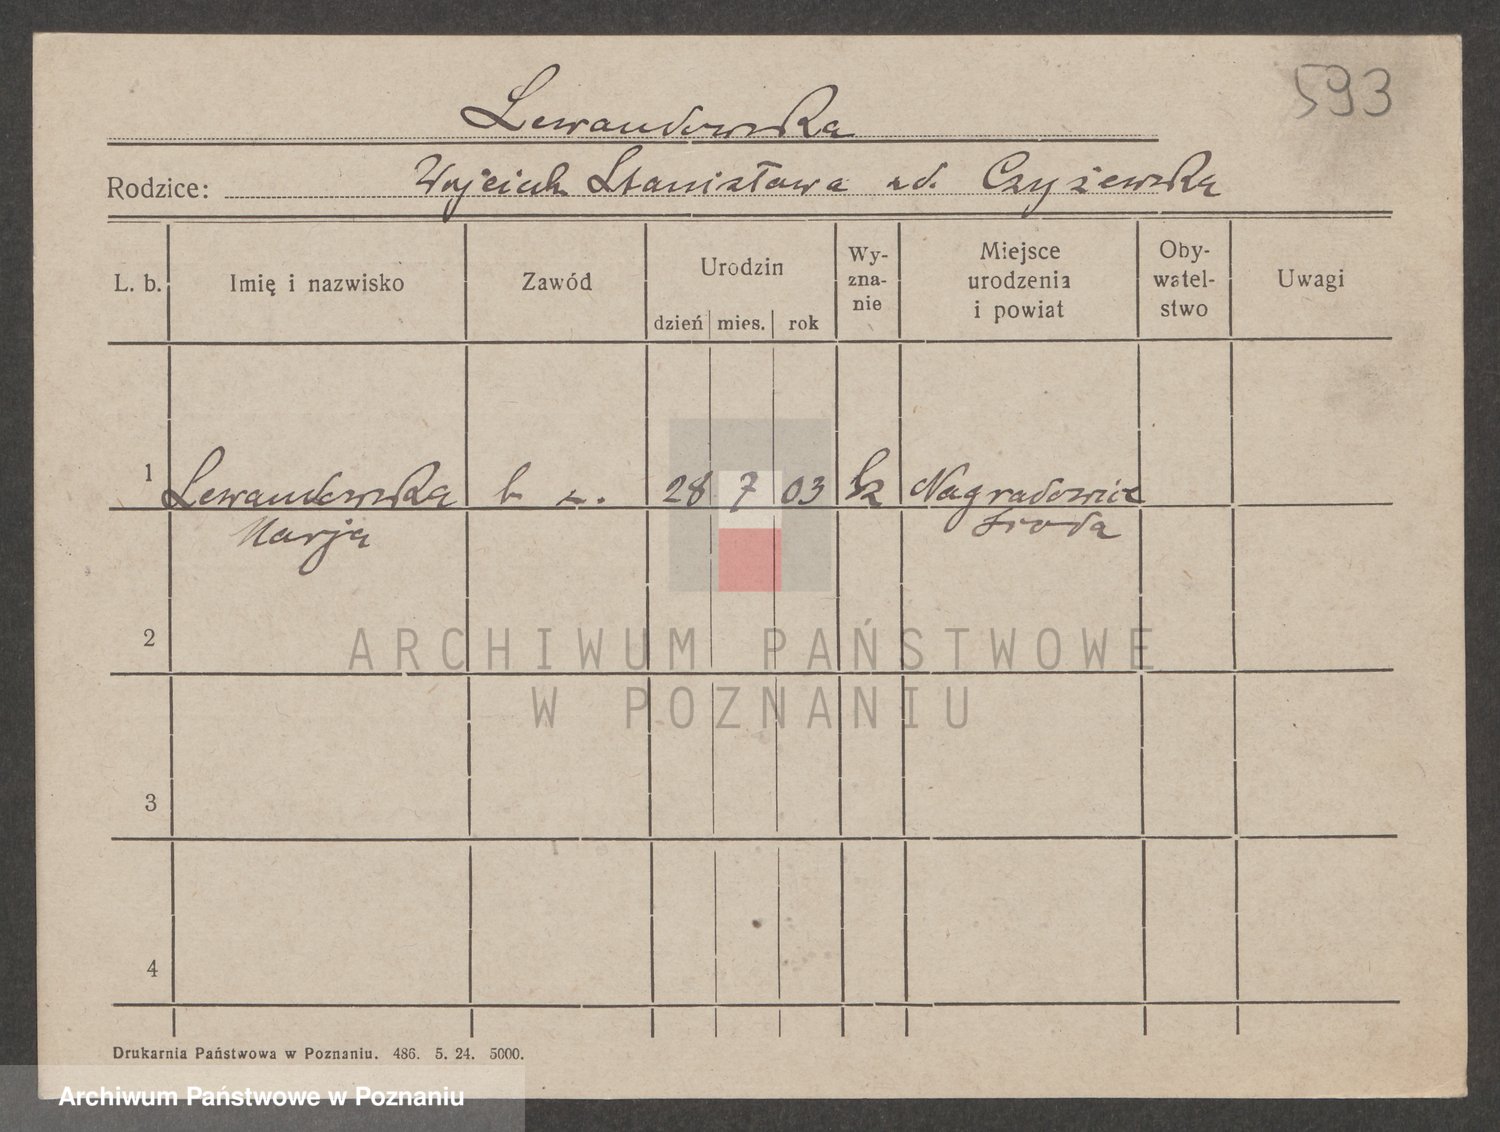 593
Lewandowska
Rodzice: Wojciech Stanisława zd. Czyżewska
L. b. Imię i nazwisko Zawód Urodzin dzień mies. rok Wy-zna-nie Miejsce urodzenia i powiat Oby-watel-stwo Uwagi
1 Lewandowska b z. 28 7 03 rk Nagradowice
Marja Środa
2
ARCHIWUM PAŃSTWOWE
W POZNANIU
3
4
Drukarnia Państwowa w Poznaniu. 486. 5. 24. 5000.
Archiwum Państwowe w Poznaniu